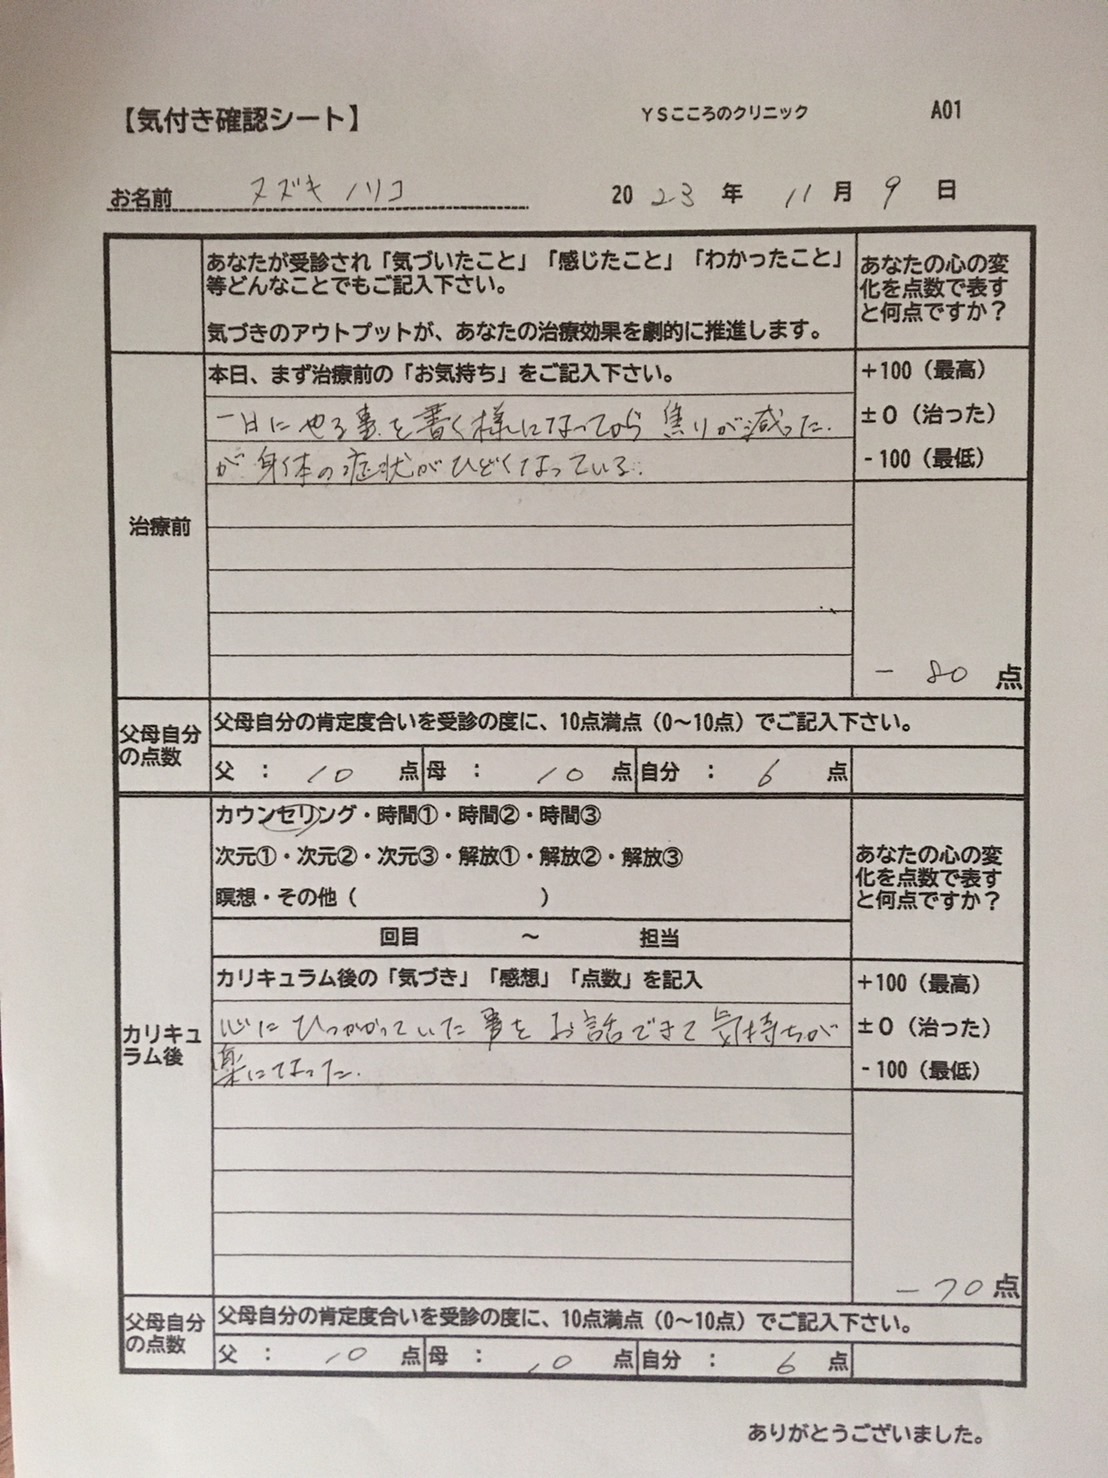 【気付き確認シート】 YSこころのクリニック A01
お名前 スズキノリコ 2023年11月9日
あなたが受診され「気づいたこと」「感じたこと」「わかったこと」
等どんなことでもご記入下さい。
気づきのアウトプットが、あなたの治療効果を劇的に推進します。
あなたの心の変
化を点数で表す
と何点ですか?
治療前
本日、まず治療前の「お気持ち」をご記入下さい。
一日にやる事を書く様になってから焦りが減った.
が身体の症状がひどくなっている.
+100(最高)
±0(治った)
-100(最低)
-80点
父母自分
の点数
父母自分の肯定度合いを受診の度に、10点満点(0~10点)でご記入下さい。
父:10点 母:10点 自分:6点
カリキュ
ラム後
カウンセリング・時間①・時間②・時間③
次元①・次元②・次元③・解放①・解放②・解放③
瞑想・その他( )
回目 ~ 担当
あなたの心の変
化を点数で表す
と何点ですか?
カリキュラム後の「気づき」「感想」「点数」を記入
心にひっかかっていた事をお話できて気持ちが
楽になった.
+100(最高)
±0(治った)
-100(最低)
-70点
父母自分
の点数
父母自分の肯定度合いを受診の度に、10点満点(0~10点)でご記入下さい。
父:10点 母:10点 自分:6点
ありがとうございました。